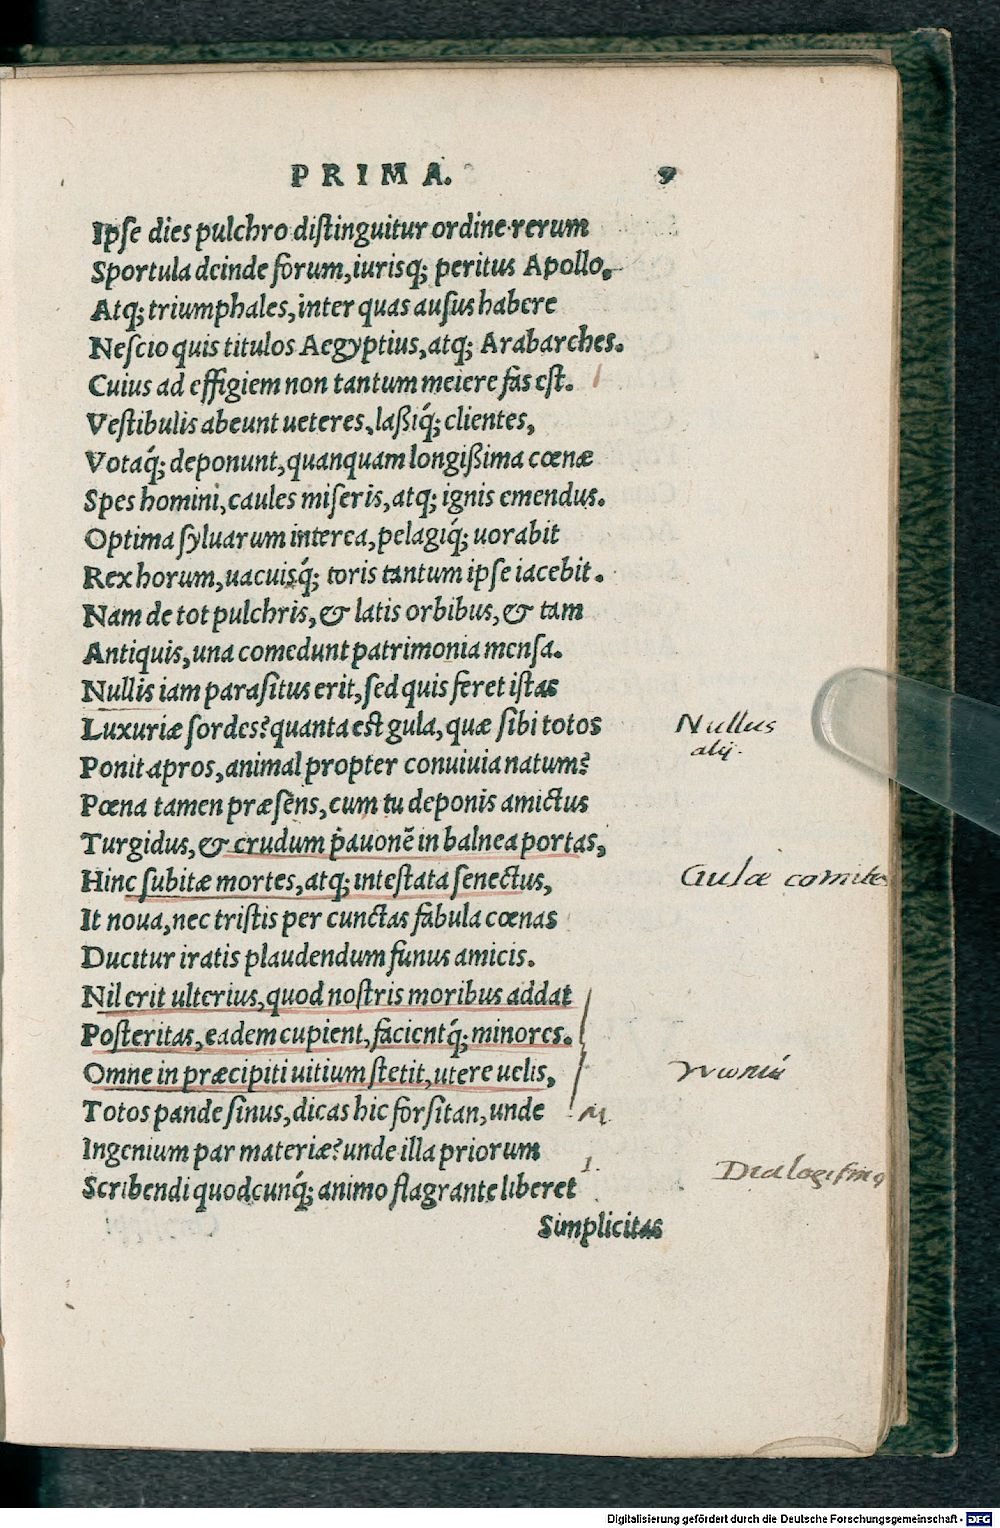 PRIMA. 9
Ipſe dies pulchro diſtinguitur ordine rerum
Sportula deinde forum, iurisq; peritus Apollo,
Atq; triumphales, inter quas auſus habere
Neſcio quis titulos Aegyptius, atq; Arabarches.
Cuius ad effigiem non tantum meiere fas eſt.
Veſtibulis abeunt ueteres, laßiq́; clientes,
Votaq́; deponunt, quanquam longißima cœnæ
Spes homini, caules miſeris, atq; ignis emendus.
Optima ſyluarum interea, pelagiq́; uorabit
Rex horum, uacuisq́; toris tantum ipſe iacebit.
Nam de tot pulchris, & latis orbibus, & tam
Antiquis, una comedunt patrimonia menſa.
Nullis iam paraſitus erit, ſed quis feret iſtas
Luxuriæ ſordes? quanta eſt gula, quæ ſibi totos
Nullus
alij.
Ponit apros, animal propter conuiuia natum?
Pœna tamen præſẽns, cum tu deponis amictus
Turgidus, & crudum pauonẽ in balnea portas,
Hinc ſubitæ mortes, atq; inteſtata ſenectus,
Gulæ comites
It noua, nec triſtis per cunctas fabula cœnas
Ducitur iratis plaudendum funus amicis.
Nil erit ulterius, quod noſtris moribus addat
Poſteritas, eadem cupient, facientq́; minores.
Omne in præcipiti uitium ſtetit, utere uelis,
Totos pande ſinus, dicas hic forſitan, unde
Ingenium par materiæ? unde illa priorum
Scribendi quodcunq́; animo flagrante liberet
1.
Dialogiſmꝰ
Simplicitas
Digitalisierung gefördert durch die Deutsche Forschungsgemeinschaft - DFG